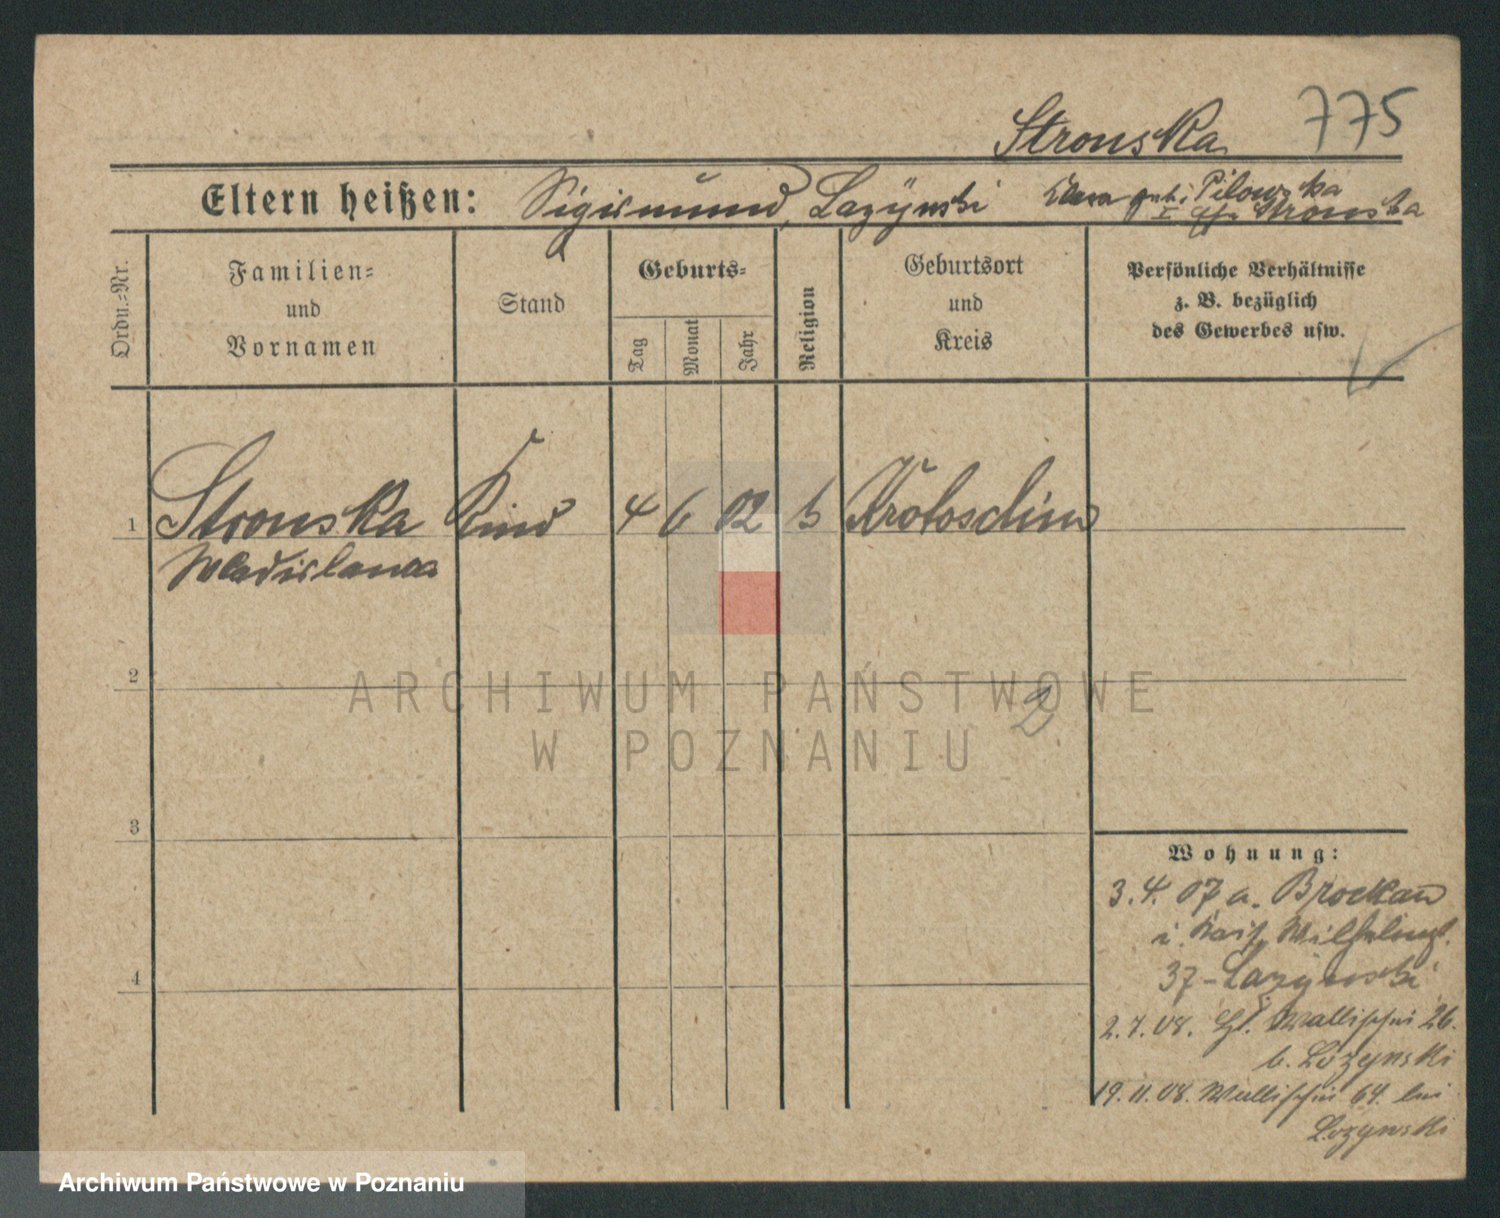 Stronska 775
Eltern heißen: Sigismund, Lazÿnski geb. Pilowska
Stronska
Ordn.-Nr.
Familien-
und
Vornamen
Stand
Geburts-
Tag
Monat
Jahr
Religion
Geburtsort
und
Kreis
Persönliche Verhältnisse
z. B. bezüglich
des Gewerbes usw.
1 Stronska Kind 4 6 02 Krotoschin
Wladislawa
2
ARCHIWUM PAŃSTWOWE
2
W POZNANIU
3
4
Wohnung:
3.4.07 a. Brockau
i. Wilhelmst.
37 - Lazÿnski
2.7.08. Gr. Wallischei 26.
b. Lozynski
19.11.08. Wallischei 64. bei
Lozynski
Archiwum Państwowe w Poznaniu